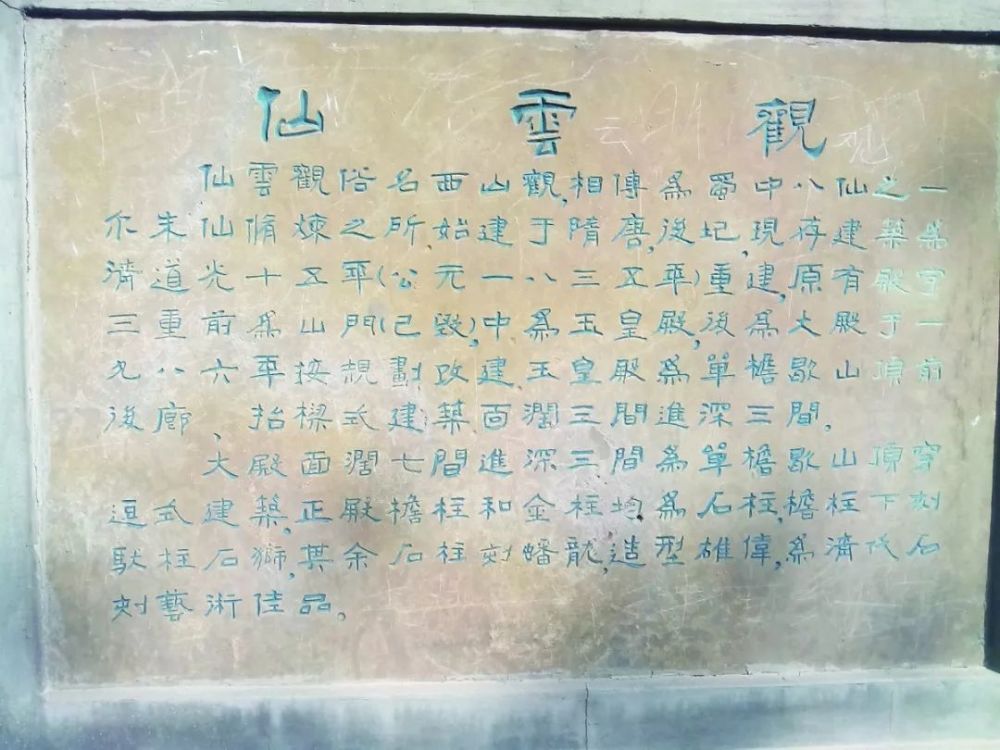 仙雲觀
仙雲觀俗名西山觀,相傳為蜀中八仙之一
尔朱仙脩煉之所.始建于隋唐,後圮,現存建築為
清道光十五年(公元一八三五年)重建,原有殿宇
三重前為山門(已毀),中為玉皇殿,後為大殿于一
九八六年按規劃改建.玉皇殿為單檐歇山頂前
後廊、抬樑式建築面濶三間進深三間.
大殿面濶七間進深三間為單檐歇山頂穿
逗式建築,正殿檐柱和金柱均為石柱,檐柱下刻
馱柱石獅,其余石柱刻蟠龍,造型雄偉,為清代石
刻藝術佳品。